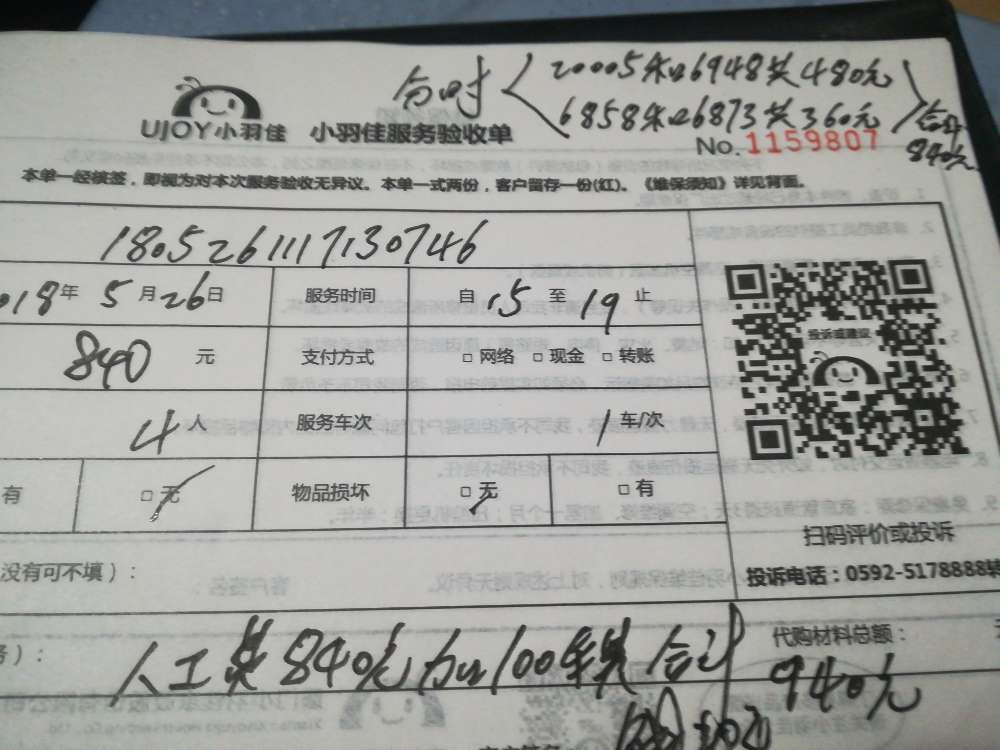 合时 20005和26948共480元
6858和26873共360元 合计
840元
UJOY小羽佳 小羽佳服务验收单
No.1159807
本单一经核签，即视为对本次服务验收无异议。本单一式两份，客户留存一份(红)。《维保须知》详见背面。
180526111730746
018年 5月26日 服务时间 自15至19止
投诉或建议
840 元 支付方式 □网络 □现金 □转账
4人 服务车次 1车/次
有 □无 物品损坏 □无 □有
扫码评价或投诉
没有可不填）：
投诉电话：0592-5178888转
务）：
代购材料总额：
人工费840元加100车费 合计
940元